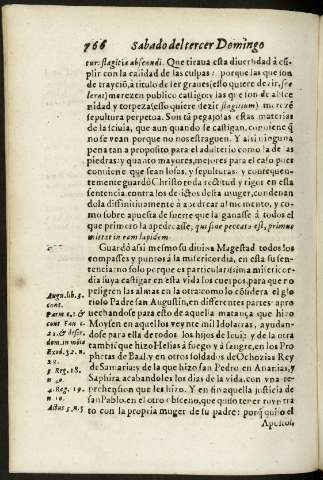 766 Sabado del tercer Domingo
tur: flagitia abscondi. Que tiraua esta diuersidad à cũ-
plir con la calidad de las culpas: porque las que son
de trayciõ, a titulo de ser graues (esso quiere dezir, sce
lera) merezen publico castigo: y las que son de obsce
nidad y torpeza (esso quiere dezir flagitium) merezē
sepultura perpetua. Son tã pegajosas estas materias
de lasciuia, que aun quando se castigan, conuiene q̃
no se vean porque nos estraguen. Y assi ninguna
pena tan a proposito para el adulterio como la de las
piedras: y quanto mayores, mejores para el caso: pues
conuiene que sean losas, y sepulturas: y consequen-
temente guardò Christo toda rectitud y rigor en esta
sentencia contra los delictos desta muger, condenan
dola diffinitiuamente à apedrear al momento, y co-
mo sobre apuesta de suerte que la ganasse à todos el
que primero la apedreasse, qui sine peccato est, primus
mittat in eam lapidem.
Guardò assi mesmo su diuina Magestad todos los
compasses y puntos à la misericordia, en esta su sen-
tencia: no solo porque es particularissima misericor-
dia suya castigar en esta vida los cuerpos, para que no
peligren las almas en la otra: como lo cõsidera el glo
rioso Padre san Augustin, en differentes partes: apro
uechandose para esto de aquella matança que hizo
Moysen en aquellos veynte mil Idolatras, ayudan-
dose para ella de todos los hijos de Leui: y de la otra
tambiē que hizo Helias à fuego y à sangre, en los Pro
phetas de Baal, y en otros soldados de Ochozias Rey
de Samaria: y de la que hizo san Pedro, en Ananias, y
Saphira acabandoles los dias de la vida, con vna re-
prehension que les hizo. Y en fin aquella justicia de
san Pablo, en el otro obsceno, que quiso tener torpe tra
to con la propria muger de su padre: porq̃ quiso el
Apostol,
Aug. lib. 3.
cont.
Parm. c. 1. &
cont. Fau. c.
22. & de ser.
dom. in mõte
Exod. 32. n.
28.
3. Reg. 18.
n. 40.
4. Reg. 1.
n. 10.
Actus 5. n. 5